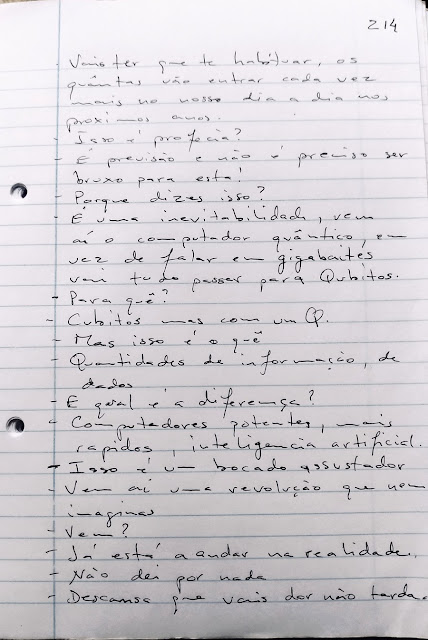 214
- Vais ter que te habituar, os
quântas vão entrar cada vez
mais no nosso dia a dia nos
proximos anos.
- Isso é profecia?
- É previsão e não é preciso ser
bruxo para esta!
- Porque dizes isso?
- É uma inevitabilidade, vem
aí o computador quântico, em
vez de falar em gigabaites
vai tudo passar para Qubitos.
- Para quê?
- Cubitos mas com um Q.
- Mas isso é o quê
- Quantidades de informação, de
dados
- E qual é a diferença?
- Computadores potentes, mais
rapidos, inteligencia artificial.
- Isso é um bocado assustador
- Vem aí uma revolução que nem
imaginas
- Vem?
- Já está a andar na realidade.
- Não dei por nada
- Descansa que vais dar não tarda.